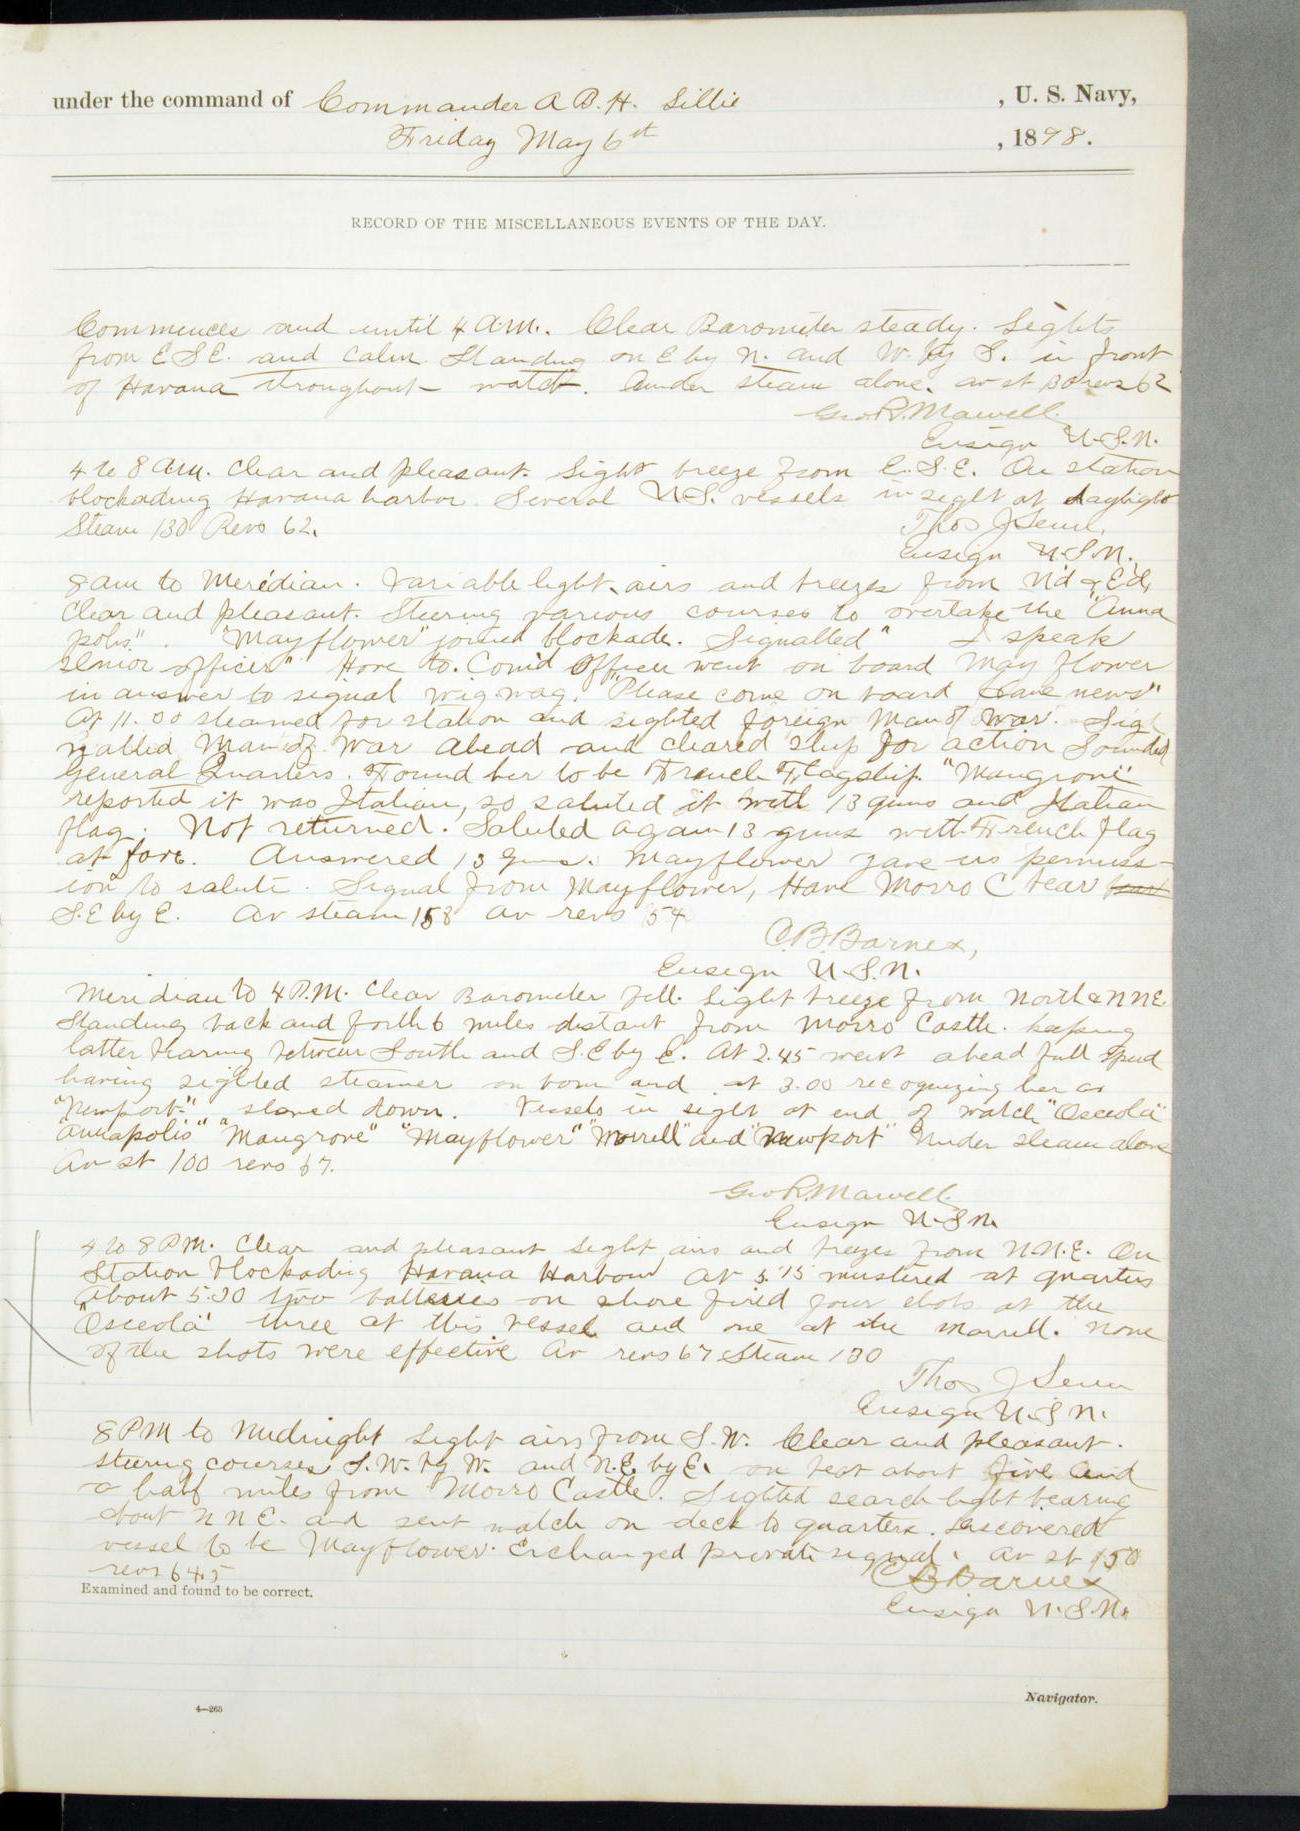 under the command of Commander A. B. H. Lillie , U. S. Navy,
Friday May 6th , 1898.
RECORD OF THE MISCELLANEOUS EVENTS OF THE DAY.
Commences and until 4 A.M. Clear Barometer steady. Lights
from E S E. and calm. Standing on E by N. and W. by S. in front
of Havana throughout watch. Under steam alone. av st 130 revs 62
Geo. R. Marvell.
Ensign U.S.N.
4 to 8 A.M. Clear and pleasant. Light breeze from E.S.E. On station
blockading Havana harbor. Several U.S. vessels in sight at daylight
Steam 130 Revs 62.
Thos J Senn.
Ensign U.S.N.
8 am to Meridian. Variable light airs and breezes from N'd & E'd,
Clear and pleasant. Steering various courses to overtake the "Anna
polis". "Mayflower" joined blockade. Signalled " I speak
senior officer" Hove to. Com'd Officer went on board Mayflower
in answer to signal wigwag. "Please come on board have news"
At 11.00 steamed for station and sighted foreign Man of War. Sig
nalled Man of War ahead and cleared ship for action Sounded
General Quarters. Found her to be French Flagship. "Mangrove"
reported it was Italian, so saluted it with 13 guns and Italian
flag. Not returned. Saluted again 13 guns with French flag
at fore. Answered 13 Guns. Mayflower gave us permiss-
ion to salute. Signal from Mayflower, Have Morro C bear
S.E by E. Av steam 158 av revs 54
C.B. Barnes,
Ensign U.S.N.
Meridian to 4 P.M. Clear Barometer fell. Light breeze from North & NNE.
Standing back and forth 6 miles distant from Morro Castle. keeping
latter bearing between South and S.E by E. At 2.45 went ahead full speed
having sighted steamer on bow and at 3.00 recognizing her as
"Newport" slowed down. Vessels in sight at end of watch "Osceola"
"Annapolis" "Mangrove" "Mayflower" "Morrill" and "Newport" Under steam alone
Av st 100 revs 67.
Geo R. Marvell.
Ensign U.S.N.
4 to 8 PM. Clear and pleasant Light airs and breezes from N.N.E. On
Station blockading Havana Harbour At 5.15 mustered at quarters
About 5:30 two batteries on shore fired four shots at the
"Osceola" three at this vessel and one at the Morrill. None
of the shots were effective Av revs 67 Steam 130
Thos J Senn
Ensign U.S.N.
8 PM to Midnight Light airs from S.W. Clear and pleasant.
steering courses S.W. by W. and N.E. by E. on beat about five and
a half miles from Morro Castle. Sighted search light bearing
about NNE. and sent watch on deck to quarters. Discovered
vessel to be Mayflower. Exchanged private signal. Av st 150
revs 64.5
C B Barnes
Examined and found to be correct.
Ensign U.S.N.
Navigator.
4—263